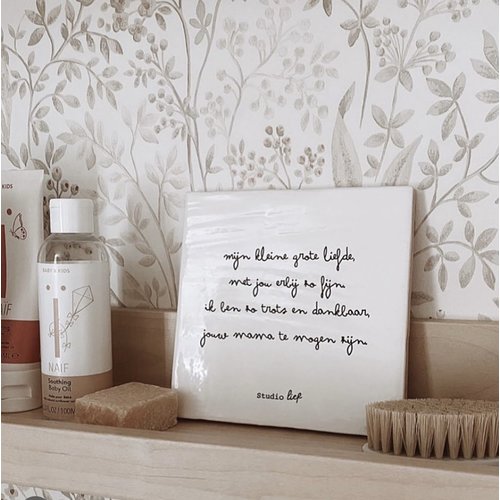 mijn kleine grote liefde,
met jou erbij zo fijn.
ik ben zo trots en dankbaar,
jouw mama te mogen zijn.
Studio lief
BABY & KIDS
NAÏF
Soothing
Baby Oil
KIDS